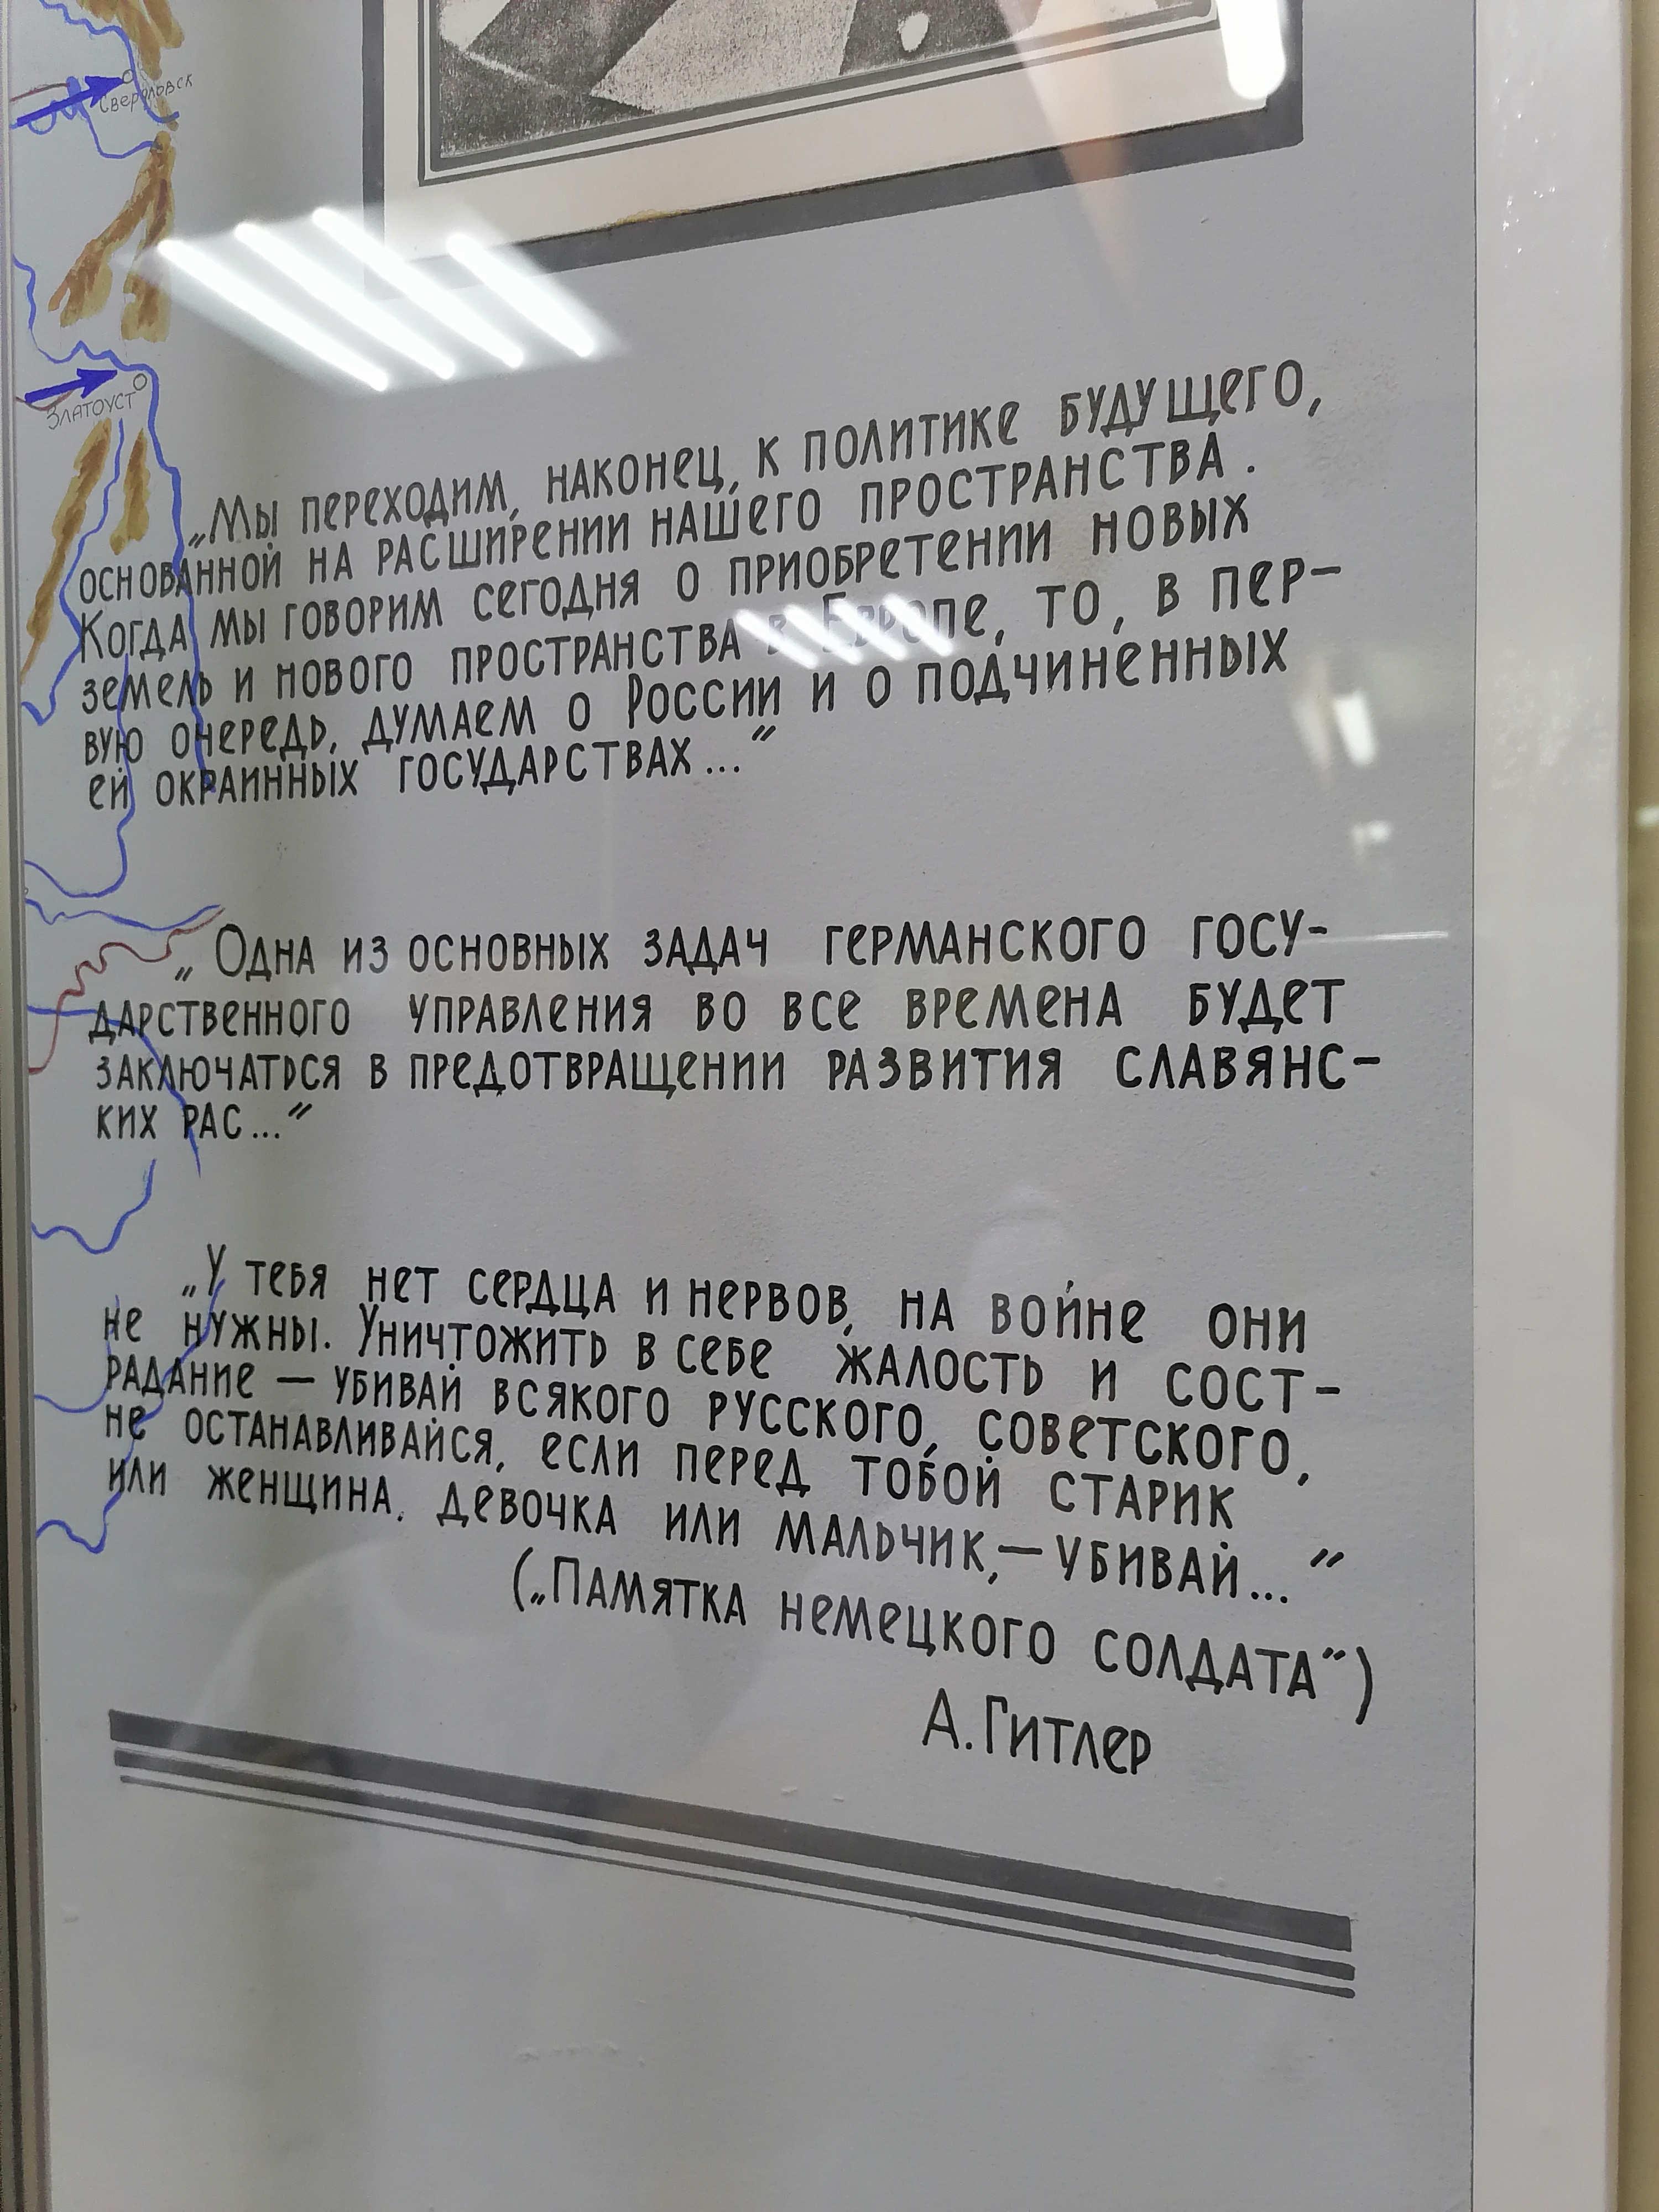 Свердловск
Златоуст
„Мы переходим, наконец, к политике будущего,
основанной на расширении нашего пространства.
Когда мы говорим сегодня о приобретении новых
земель и нового пространства в Европе, то, в пер-
вую очередь, думаем о России и о подчиненных
ей окраинных государствах..."
„Одна из основных задач германского госу-
дарственного управления во все времена будет
заключаться в предотвращении развития славянс-
ких рас..."
„У тебя нет сердца и нервов, на войне они
не нужны. Уничтожить в себе жалость и сост-
радание — убивай всякого русского, советского,
не останавливайся, если перед тобой старик
или женщина, девочка или мальчик,— убивай..."
(„Памятка немецкого солдата")
А. Гитлер